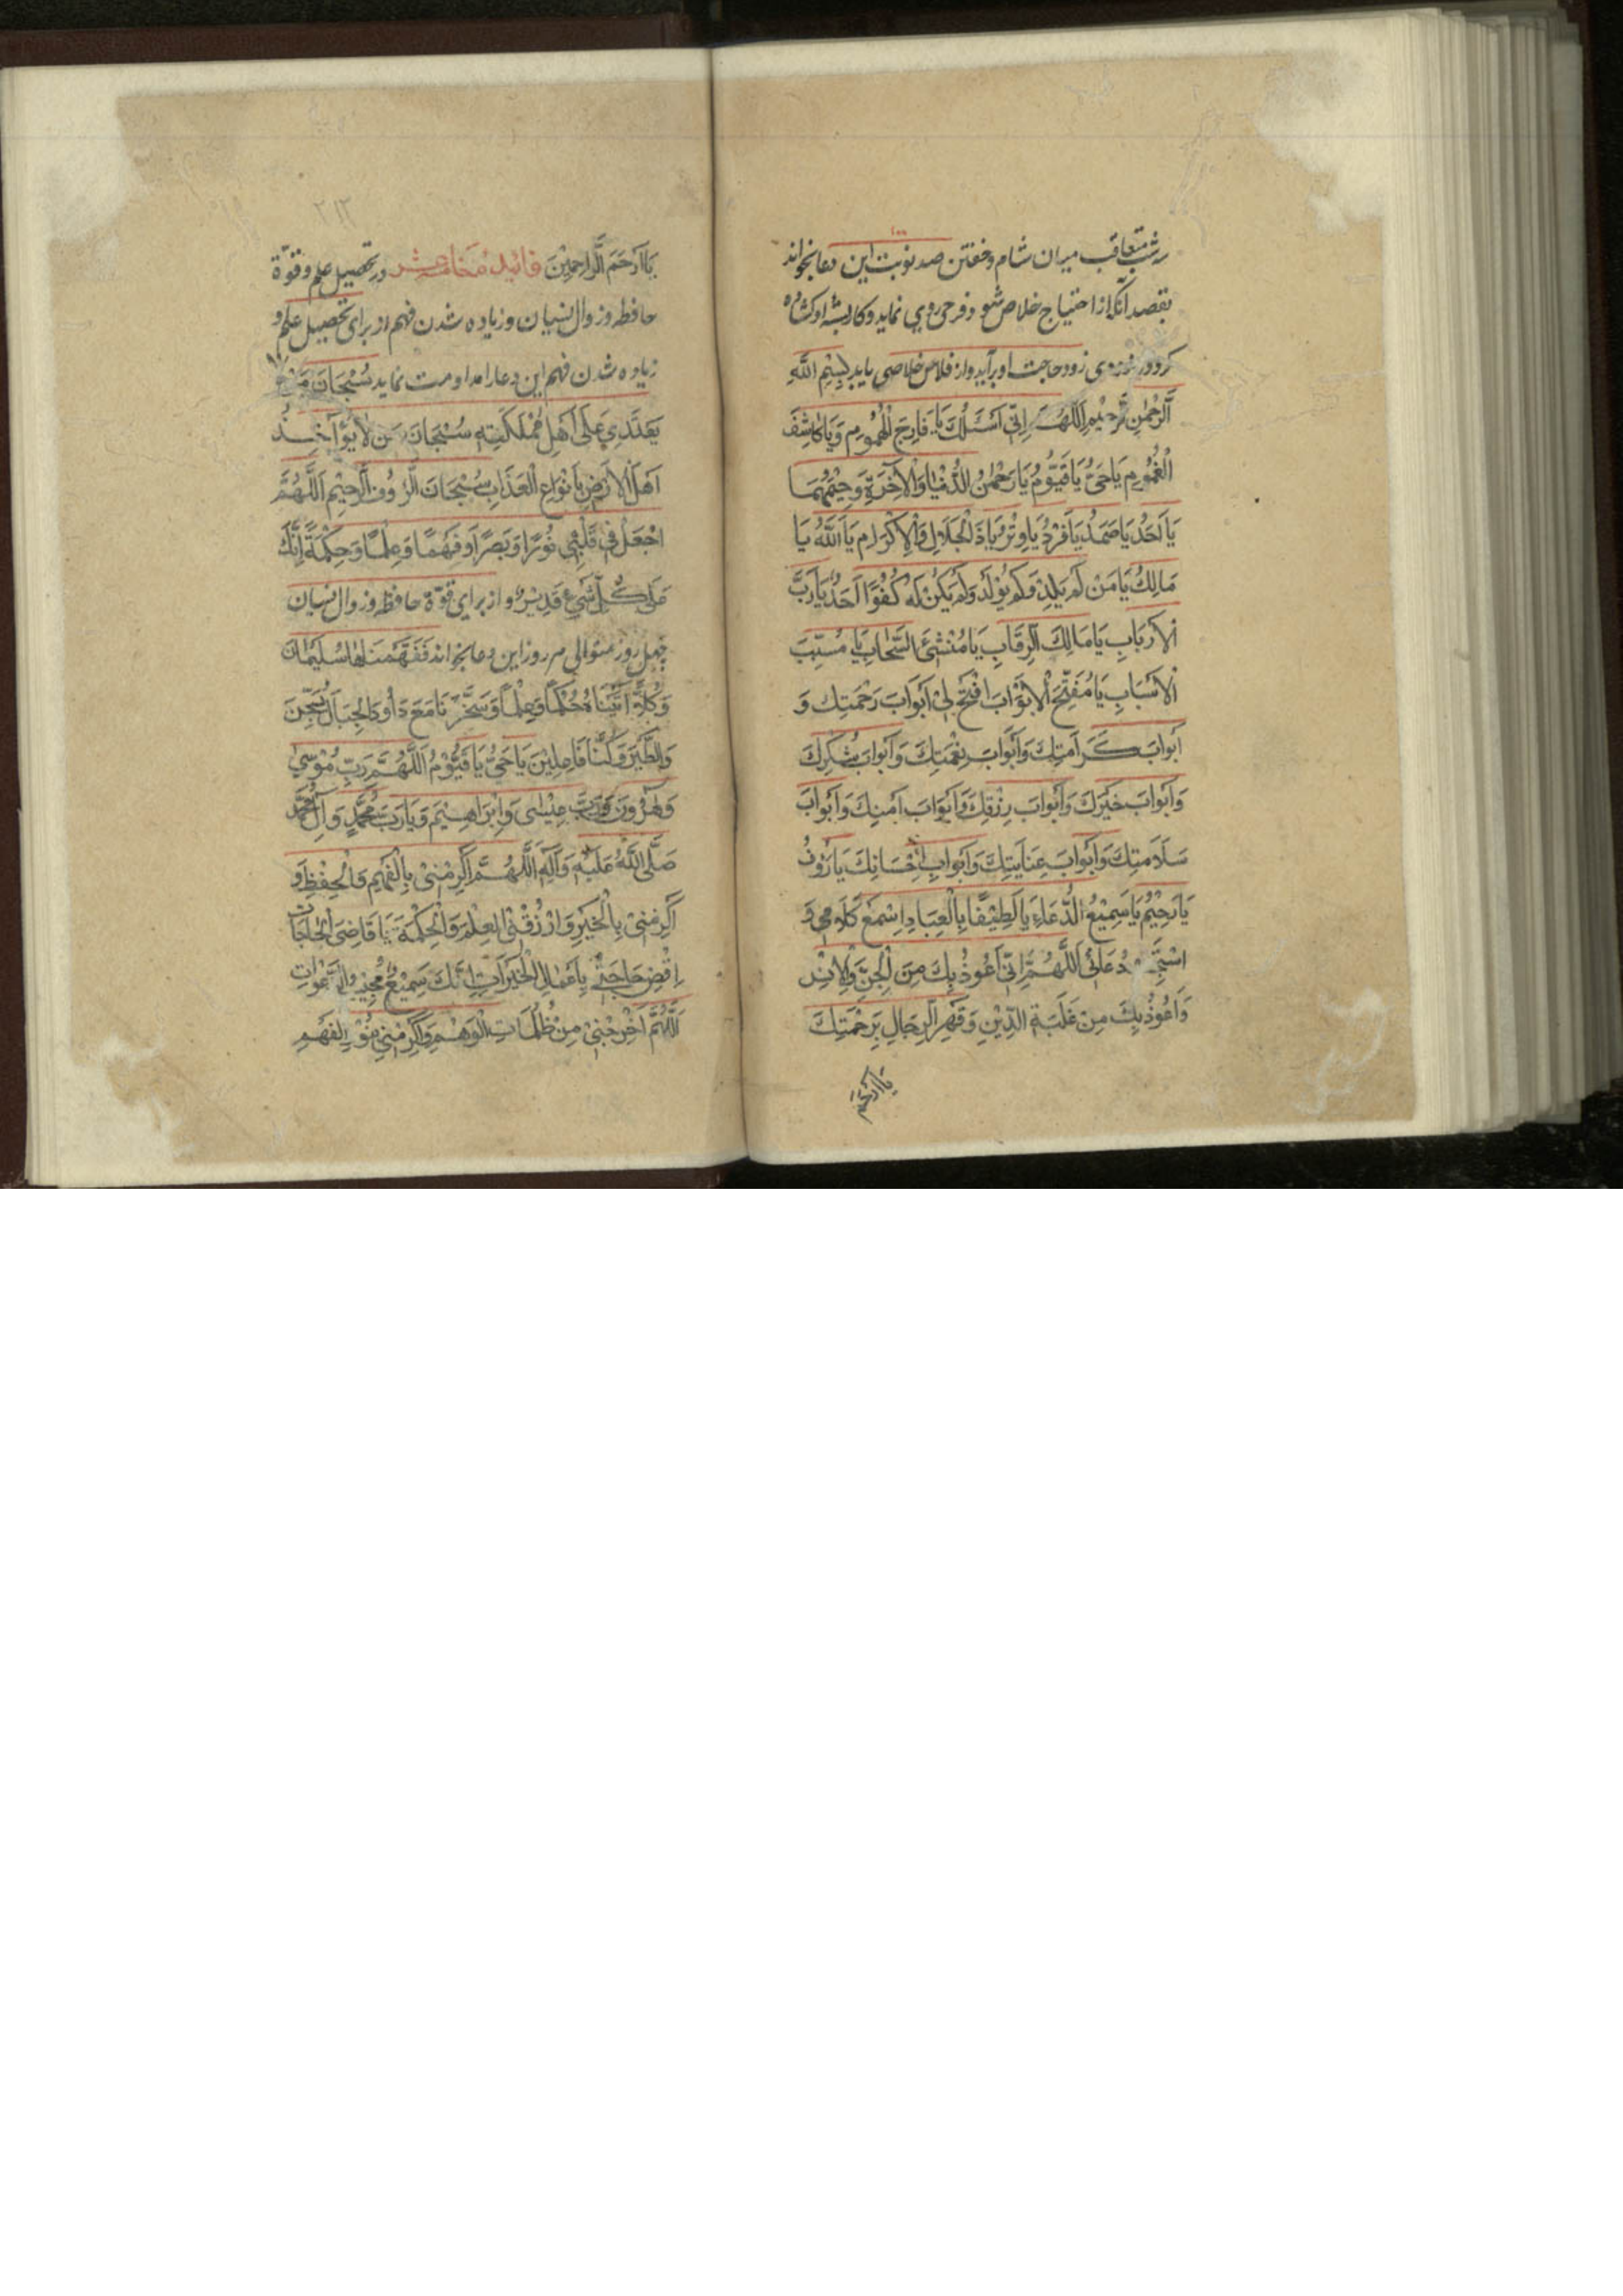 ۱۰۰
شب متعاقب میان شام و خفتن صد نوبت این دعا بخواند
بقصد آنکه از احتیاج خلاص شود و فرحی روی نماید و کار بسته او کشاده
کردد بزودی زود حاجت او برآید و از فلاس خلاصی یابد بِسْمِ اللّٰهِ
الرَّحْمٰنِ الرَّحِيْمِ اَللّٰهُمَّ اِنِّي اَسْئَلُكَ يَا فَارِجَ الْهُمُومِ وَيَا كَاشِفَ
الْغُمُومِ يَا حَيُّ يَا قَيُّومُ يَا رَحْمٰنَ الدُّنْيَا وَالْاٰخِرَةِ وَرَحِيْمَهُمَا
يَا اَحَدُ يَا صَمَدُ يَا فَرْدُ يَا وِتْرُ يَا ذَالْجَلَالِ وَالْاِكْرَامِ يَا اَللّٰهُ يَا
مَالِكُ يَا مَنْ لَمْ يَلِدْ وَلَمْ يُوْلَدْ وَلَمْ يَكُنْ لَهُ كُفُوًا اَحَدٌ يَا رَبَّ
الْاَرْبَابِ يَا مَالِكَ الرِّقَابِ يَا مُنْشِئَ السَّحَابِ يَا مُسَبِّبَ
الْاَسْبَابِ يَا مُفَتِّحَ الْاَبْوَابَ افْتَحْ لِيْ اَبْوَابَ رَحْمَتِكَ وَ
اَبْوَابَ كَرَامَتِكَ وَاَبْوَابَ نِعْمَتِكَ وَاَبْوَابَ شُكْرِكَ
وَاَبْوَابَ خَيْرِكَ وَاَبْوَابَ رِزْقِكَ وَاَبْوَابَ اَمْنِكَ وَاَبْوَابَ
سَلَامَتِكَ وَاَبْوَابَ عِنَايَتِكَ وَاَبْوَابِ اِحْسَانِكَ يَا رَؤُفُ
يَا رَحِيْمُ يَا سَمِيْعُ الدُّعَاءِ يَا لَطِيْفًا بِالْعِبَادِ اِسْمَعْ كَلَامِي وَ
اسْتَجِبْ دُعَائِي اَللّٰهُمَّ اِنِّي اَعُوْذُ بِكَ مِنَ الْجِنِّ وَالْاِنْسِ
وَاَعُوْذُ بِكَ مِنْ غَلَبَةِ الدَّيْنِ وَقَهْرِ الرِّجَالِ بِرَحْمَتِكَ
يَا اَرْحَمَ
۲۱۲
يَا اَرْحَمَ الرَّاحِمِيْنَ فائده خامس عشر در تحصیل علم و قوّة
حافظه و زوال نسیان و زیاده شدن فهم از برای تحصیل علم و
زیاده شدن فهم این دعا را مداومت نماید سُبْحَانَ مَنْ لَا
يَعْتَدِي عَلٰى اَهْلِ مَمْلَكَتِهِ سُبْحَانَ مَنْ لَا يُؤَاخِذُ
اَهْلَ الْاَرْضِ بِاَنْوَاعِ الْعَذَابِ سُبْحَانَ الرَّؤُفِ الرَّحِيْمِ اَللّٰهُمَّ
اجْعَلْ فِي قَلْبِي نُوْرًا وَبَصَرًا وَفَهْمًا وَعِلْمًا وَحِكْمَةً اِنَّكَ
عَلٰى كُلِّ شَيْءٍ قَدِيْرٌ و از برای قوّة حافظه و زوال نسیان
چهل روز متوالی هر روز این دعا بخواند فَفَهَّمْنَاهَا سُلَيْمَانَ
وَكُلًّا اٰتَيْنَاهُ حُكْمًا وَعِلْمًا وَسَخَّرْنَا مَعَ دَاوُدَ الْجِبَالَ يُسَبِّحْنَ
وَالطَّيْرَ وَكُنَّا فَاعِلِيْنَ يَا حَيُّ يَا قَيُّوْمُ اَللّٰهُمَّ رَبِّ مُوْسٰى
وَهٰرُونَ وَرَبَّ عِيْسٰى وَاِبْرَاهِيْمَ وَيَا رَبَّ مُحَمَّدٍ وَاٰلِ مُحَمَّدٍ
صَلَّى اللّٰهُ عَلَيْهِ وَاٰلِهِ اَللّٰهُمَّ اَكْرِمْنِيْ بِالْفَهْمِ وَالْحِفْظِ وَ
اَكْرِمْنِيْ بِالْخَيْرِ وَارْزُقْنِي الْعِلْمَ وَالْحِكْمَةَ يَا قَاضِيَ الْحَاجَاتِ
اِقْضِ حَاجَتِي بِاَعْمَالِ الْخَيْرَاتِ اِنَّكَ سَمِيْعٌ مُجِيْبُ الدَّعَوَاتِ
اَللّٰهُمَّ اَخْرِجْنِيْ مِنْ ظُلُمَاتِ الْوَهْمِ وَاَكْرِمْنِي بِنُوْرِ الْفَهْمِ